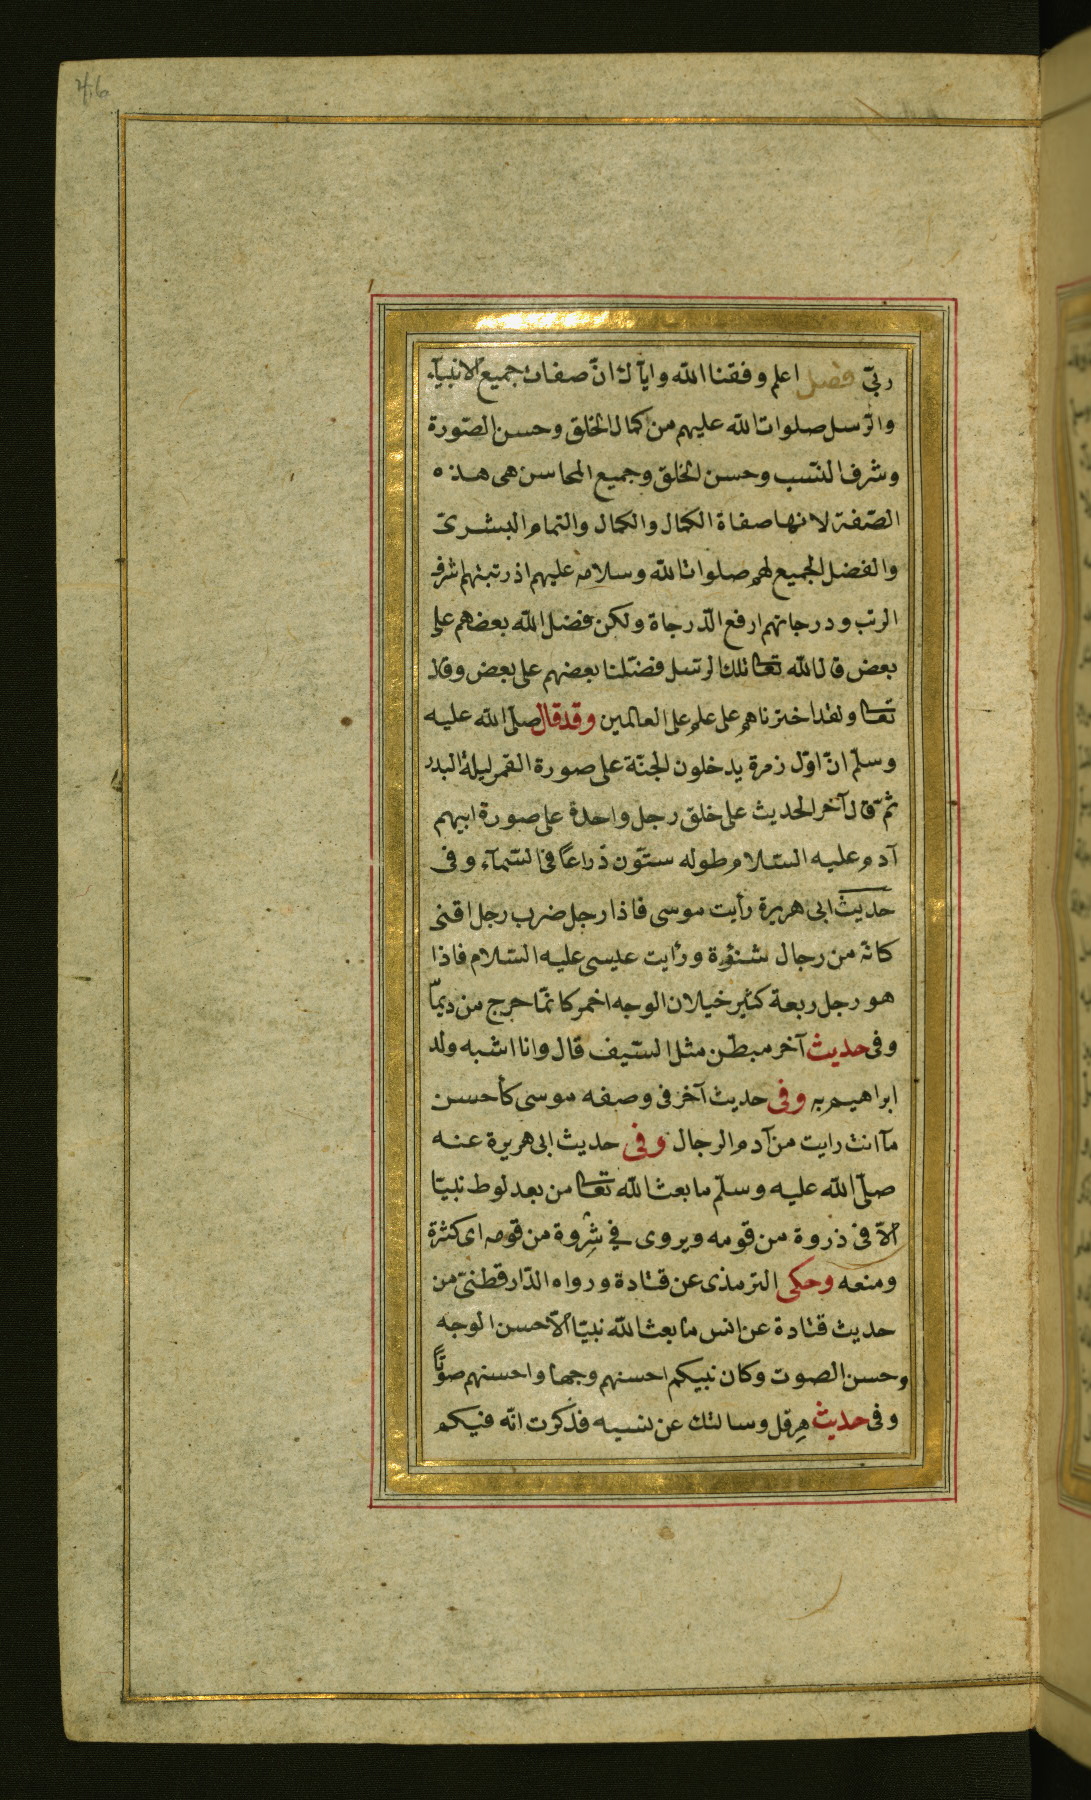 ربّي فصل اعلم وفقنا الله وايّاك انّ صفات جميع الانبيآء
والرّسل صلوات الله عليهم من كمال الخلق وحسن الصّورة
وشرف النّسب وحسن الخلق وجميع المحاسن هى هذه
الصّفة لانها صفاة الكمال والكمال والتمام البشرىّ
والفضل الجميع لهم صلوات الله وسلامه عليهم اذ رتبتهم اشرف
الرتب ودرجاتهم ارفع الدّرجاة ولكن فضل الله بعضهم على
بعض قال الله تعا تلك الرّسل فضّلنا بعضهم على بعض وقال
تعا ولقد اخترناهم على علم على العالمين وقد قال صلّى الله عليه
وسلّم انّ اوّل زمرة يدخلون الجنّة على صورة القمر ليلة البدر
ثمّ قال آخر الحديث على خلق رجل واحدة على صورة ابيهم
آدم عليه السّلام طوله ستّون ذراعًا فى السّمآء وفى
حديث ابى هريرة رأيت موسى فاذا رجل ضرب رجل اقنى
كانّه من رجال شنؤة ورأيت عيسى عليه السّلام فاذا
هو رجل ربعة كثير خيلان الوجه احمر كانّما خرج من ديماس
وفى حديث آخر مبطّن مثل السّيف قال وانا اشبه ولد
ابراهيم به وفى حديث آخر فى وصفه موسى كأحسن
مآ انت رايت من آدم الرجال وفى حديث ابى هريرة عنه
صلّى الله عليه وسلّم ما بعث الله تعا من بعد لوط نبيّا
الّا فى ذروة من قومه ويروى في شروة من قومه اى كثرة
ومنعه وحكى الترمذى عن قتادة ورواه الدّارقطنىّ من
حديث قتادة عن انس ما بعث الله نبيّا الّا حسن الوجه
وحسن الصوت وكان نبيكم احسنهم وجها واحسنهم صوتًا
وفى حديث هِرقل وسالتك عن نسبه فذكرت انّه فيكم